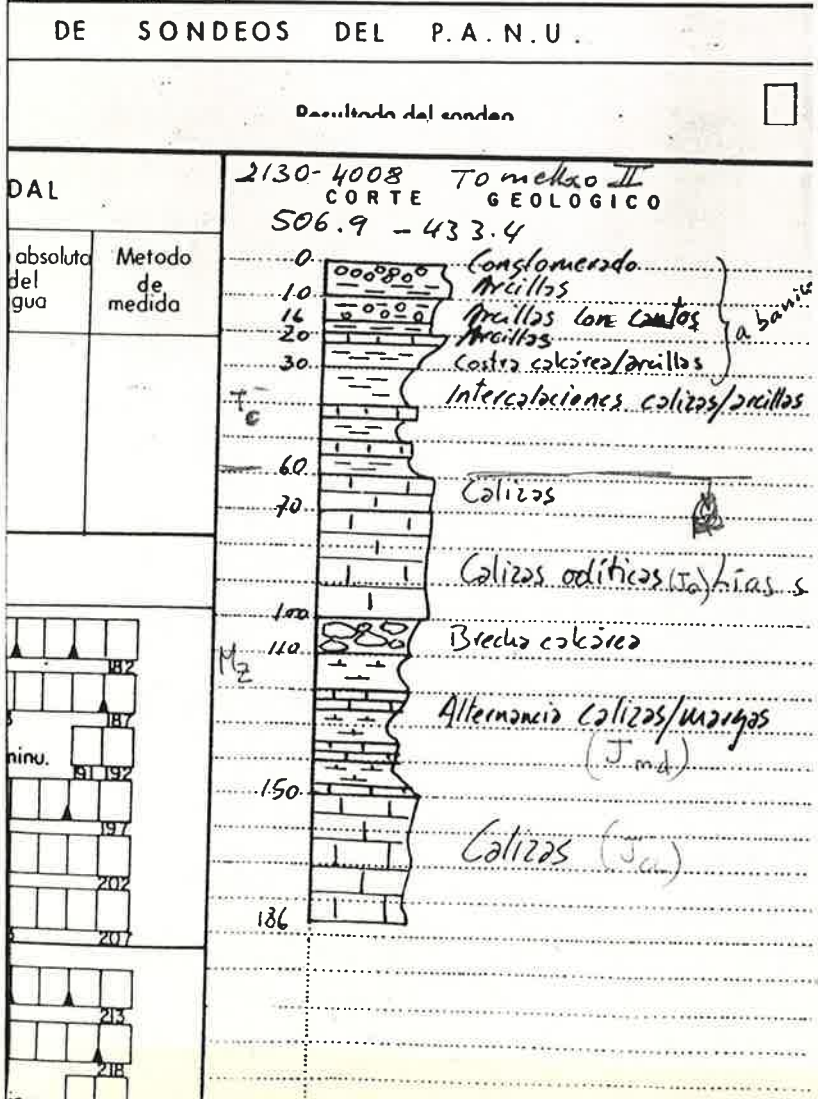 DE SONDEOS DEL P.A.N.U.
Resultado del sondeo
DAL
absoluta
del
gua
Metodo
de
medida
2130-4008 Tomelloso II
CORTE GEOLOGICO
506.9 - 433.4
0
Conglomerado
Arcillas
10
16
Arcillas con cantos
20
Arcillas
30
Costra calcárea/arcillas
abanico
Intercalaciones calizas/arcillas
Tc
60
Calizas
70
Calizas oolíticas (Ja) Lías s
100
Brecha calcárea
110
Mz
Alternancia Calizas/margas
(Jmd)
150
Calizas (Ja)
186
182
187
minu.
191 192
197
202
207
213
218